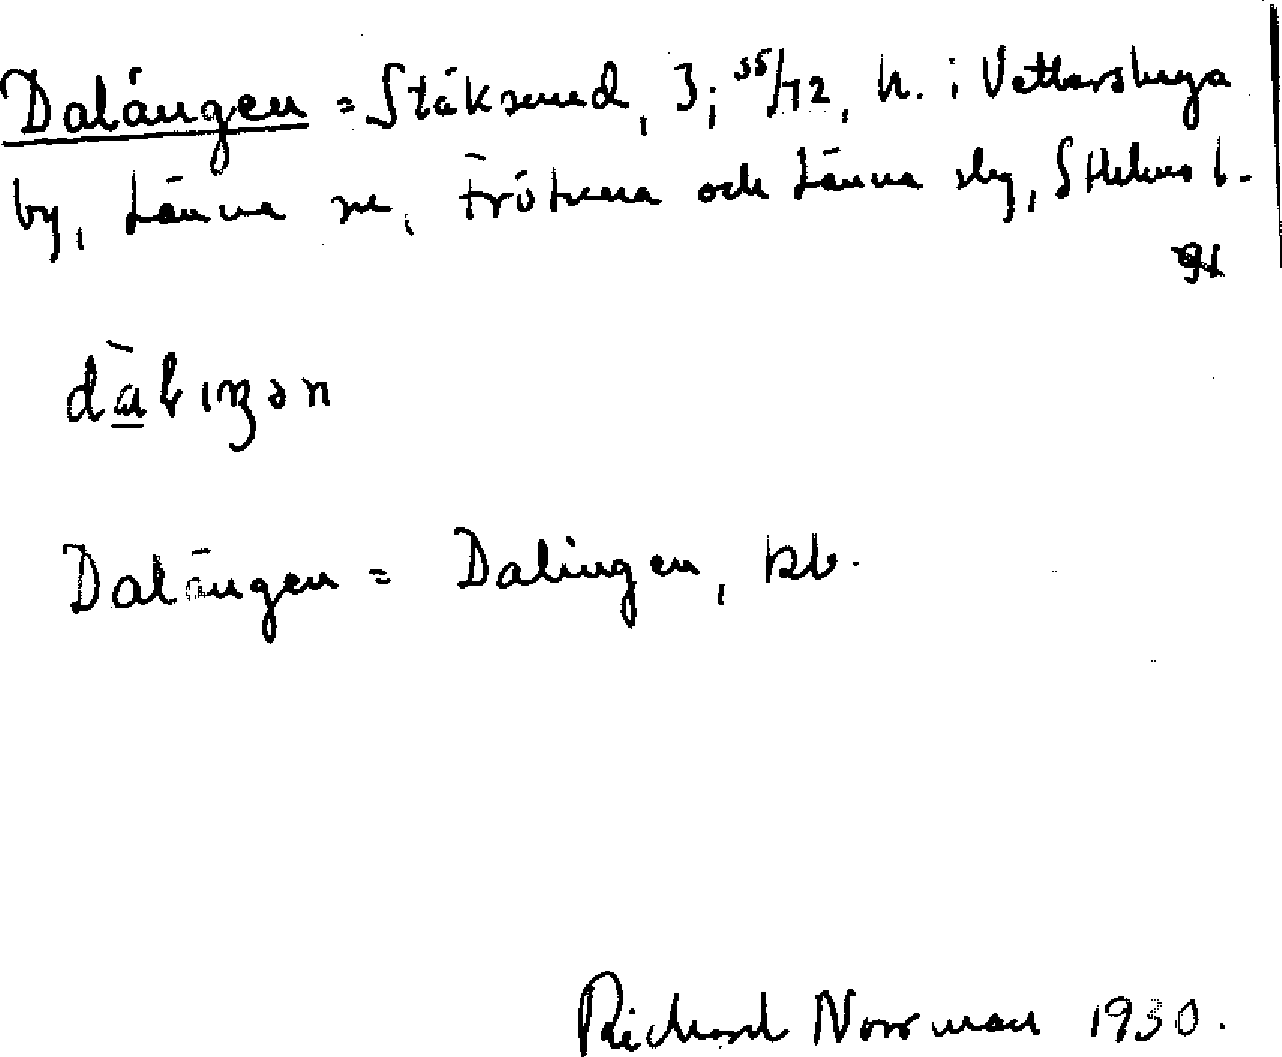 Dalängen = Stäksund, 3; 55/72, h. i Vettershaga
by, Länna sn, Frötuna och Länna skg, Sthlms l.
dàlıŋən
Dalängen = Dalingen, kb.
Richard Norrman 1930.